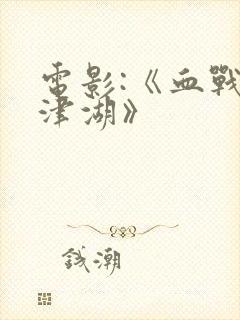 電影:《血戰
津湖》
錢潮